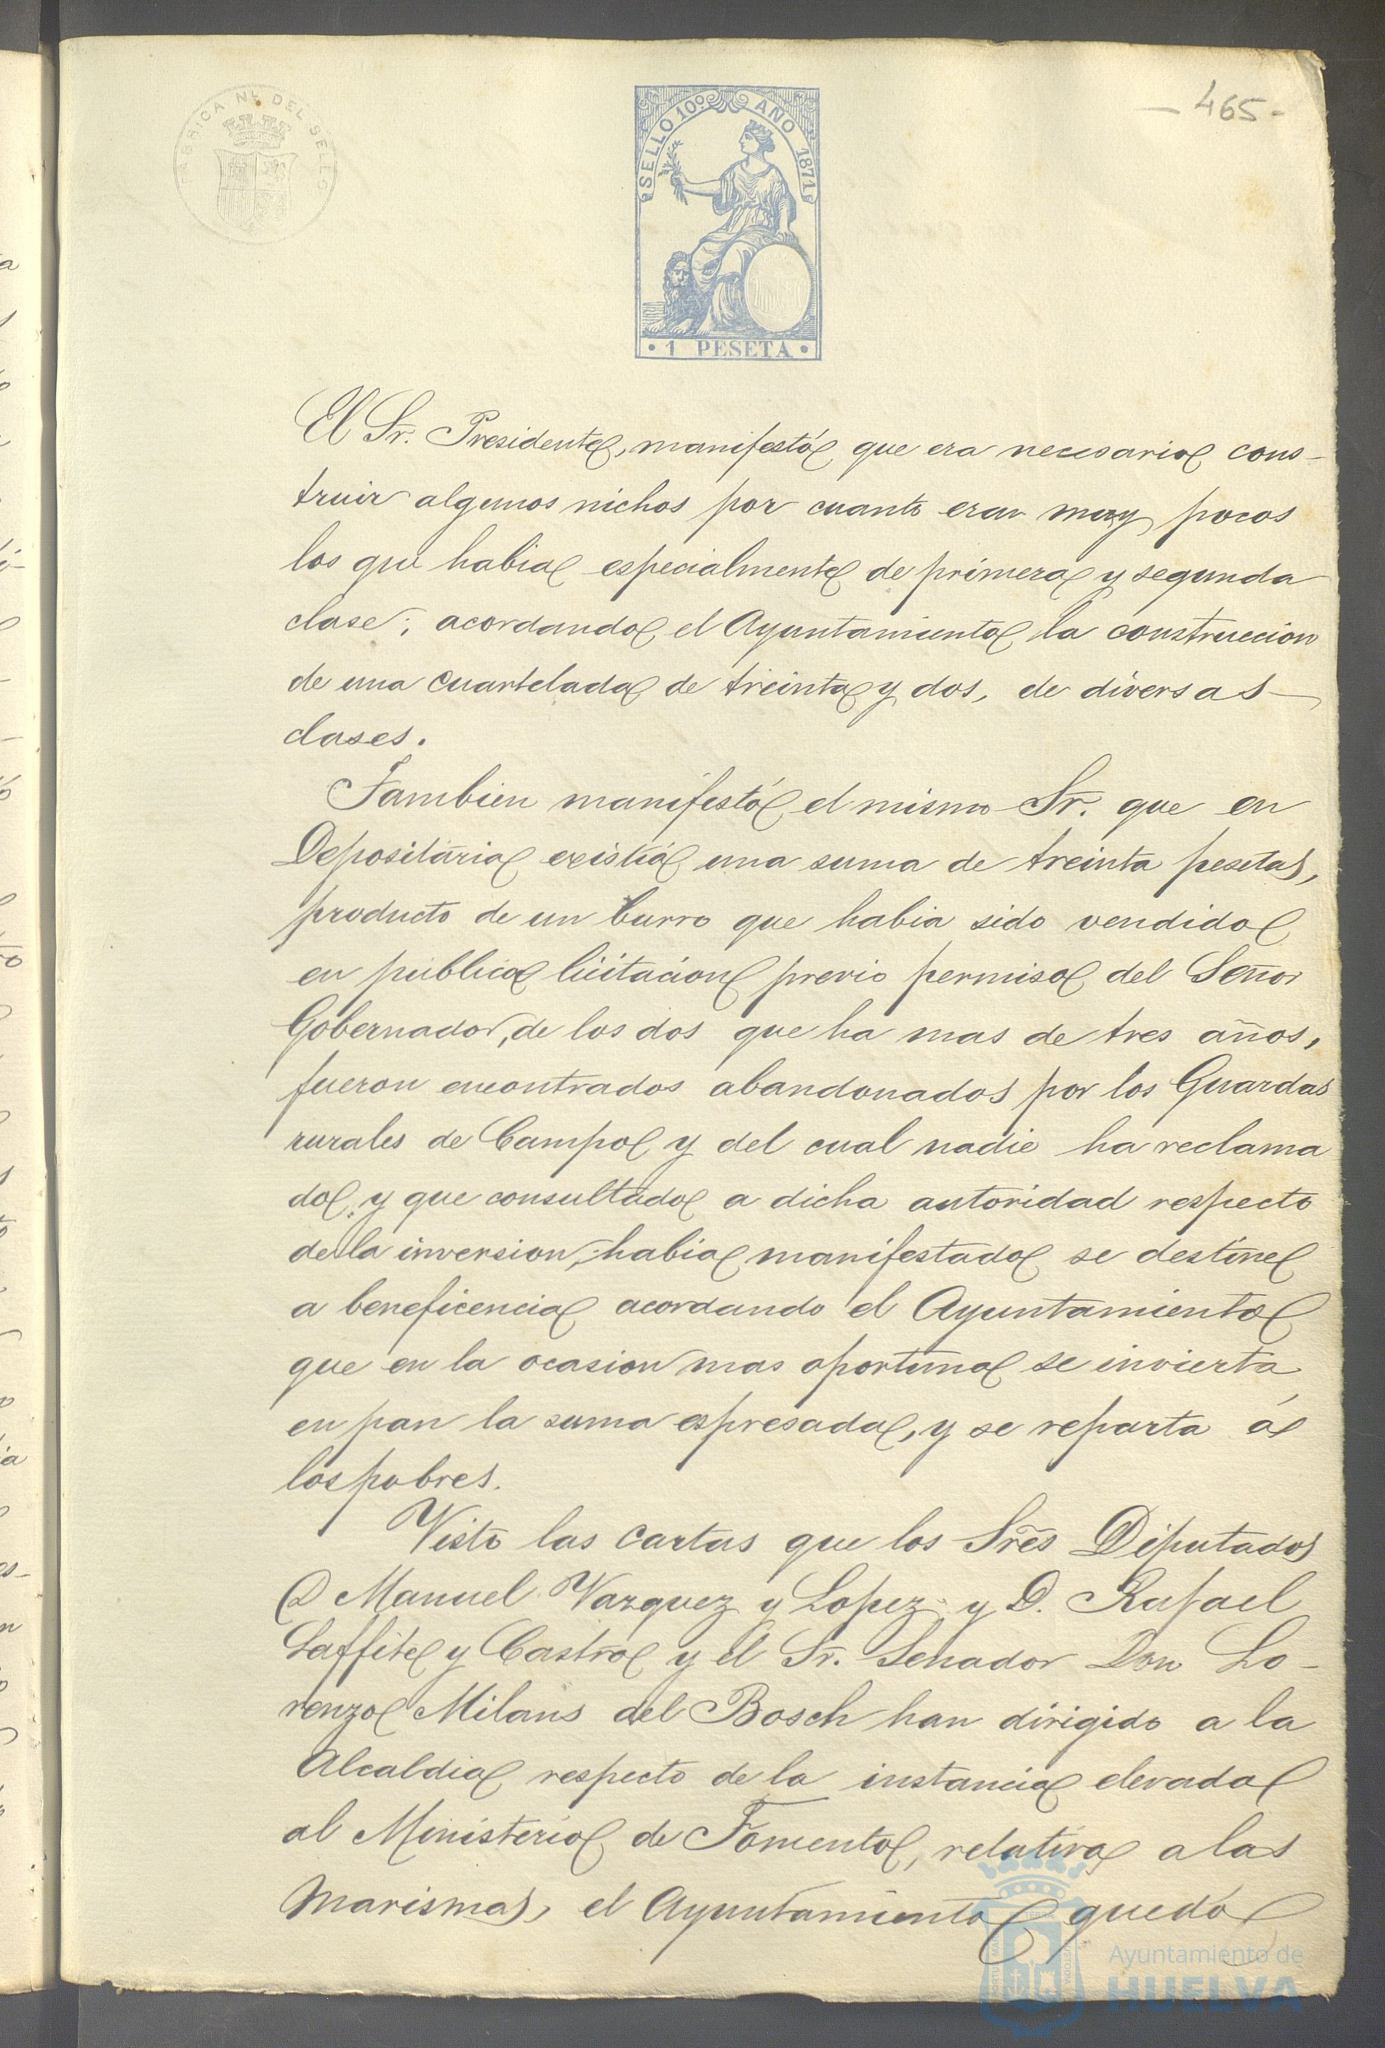 FABRICA NL. DEL SELLO
SELLO 10º AÑO 1871
1 PESETA
- 465 -
El Sr. Presidente, manifestó que era necesario cons-
truir algunos nichos por cuanto eran muy pocos
los que habia especialmente de primera y segunda
clase; acordando el Ayuntamiento la construccion
de una cuartelada de treinta y dos, de diversas
clases.
Tambien manifestó el mismo Sr. que en
Depositaria existia una suma de treinta pesetas,
producto de un burro que habia sido vendido
en publica licitacion previo permiso del Señor
Gobernador, de los dos que ha mas de tres años,
fueron encontrados abandonados por los Guardas
rurales de Campo y del cual nadie ha reclama
do, y que consultado a dicha autoridad respecto
de la inversion, habia manifestado se destine
a beneficencia acordando el Ayuntamiento
que en la ocasion mas oportuna se invierta
en pan la suma espresada, y se reparta á
los pobres.
Visto las cartas que los Sres Diputados
D Manuel Vazquez y Lopez y D. Rafael
Laffite y Castro y el Sr. Senador Don Lo-
renzo Milans del Bosch han dirigido a la
Alcaldia respecto de la instancia elevada
al Ministerio de Fomento, relativa a las
Marismas, el Ayuntamiento quedó
Ayuntamiento de
HUELVA